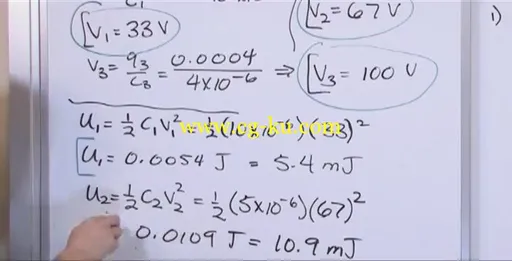 C₁
[V₁ = 33 V
[V₂ = 67 V
1)
V₃ = q₃/C₃ = 0.0004/4×10⁻⁶ ⇒ [V₃ = 100 V
U₁ = ½ C₁V₁² = ½(10×10⁻⁶)(33)²
www.cg-ku.com
[U₁ = 0.0054 J = 5.4 mJ
U₂ = ½ C₂V₂² = ½(5×10⁻⁶)(67)²
0.0109 J = 10.9 mJ